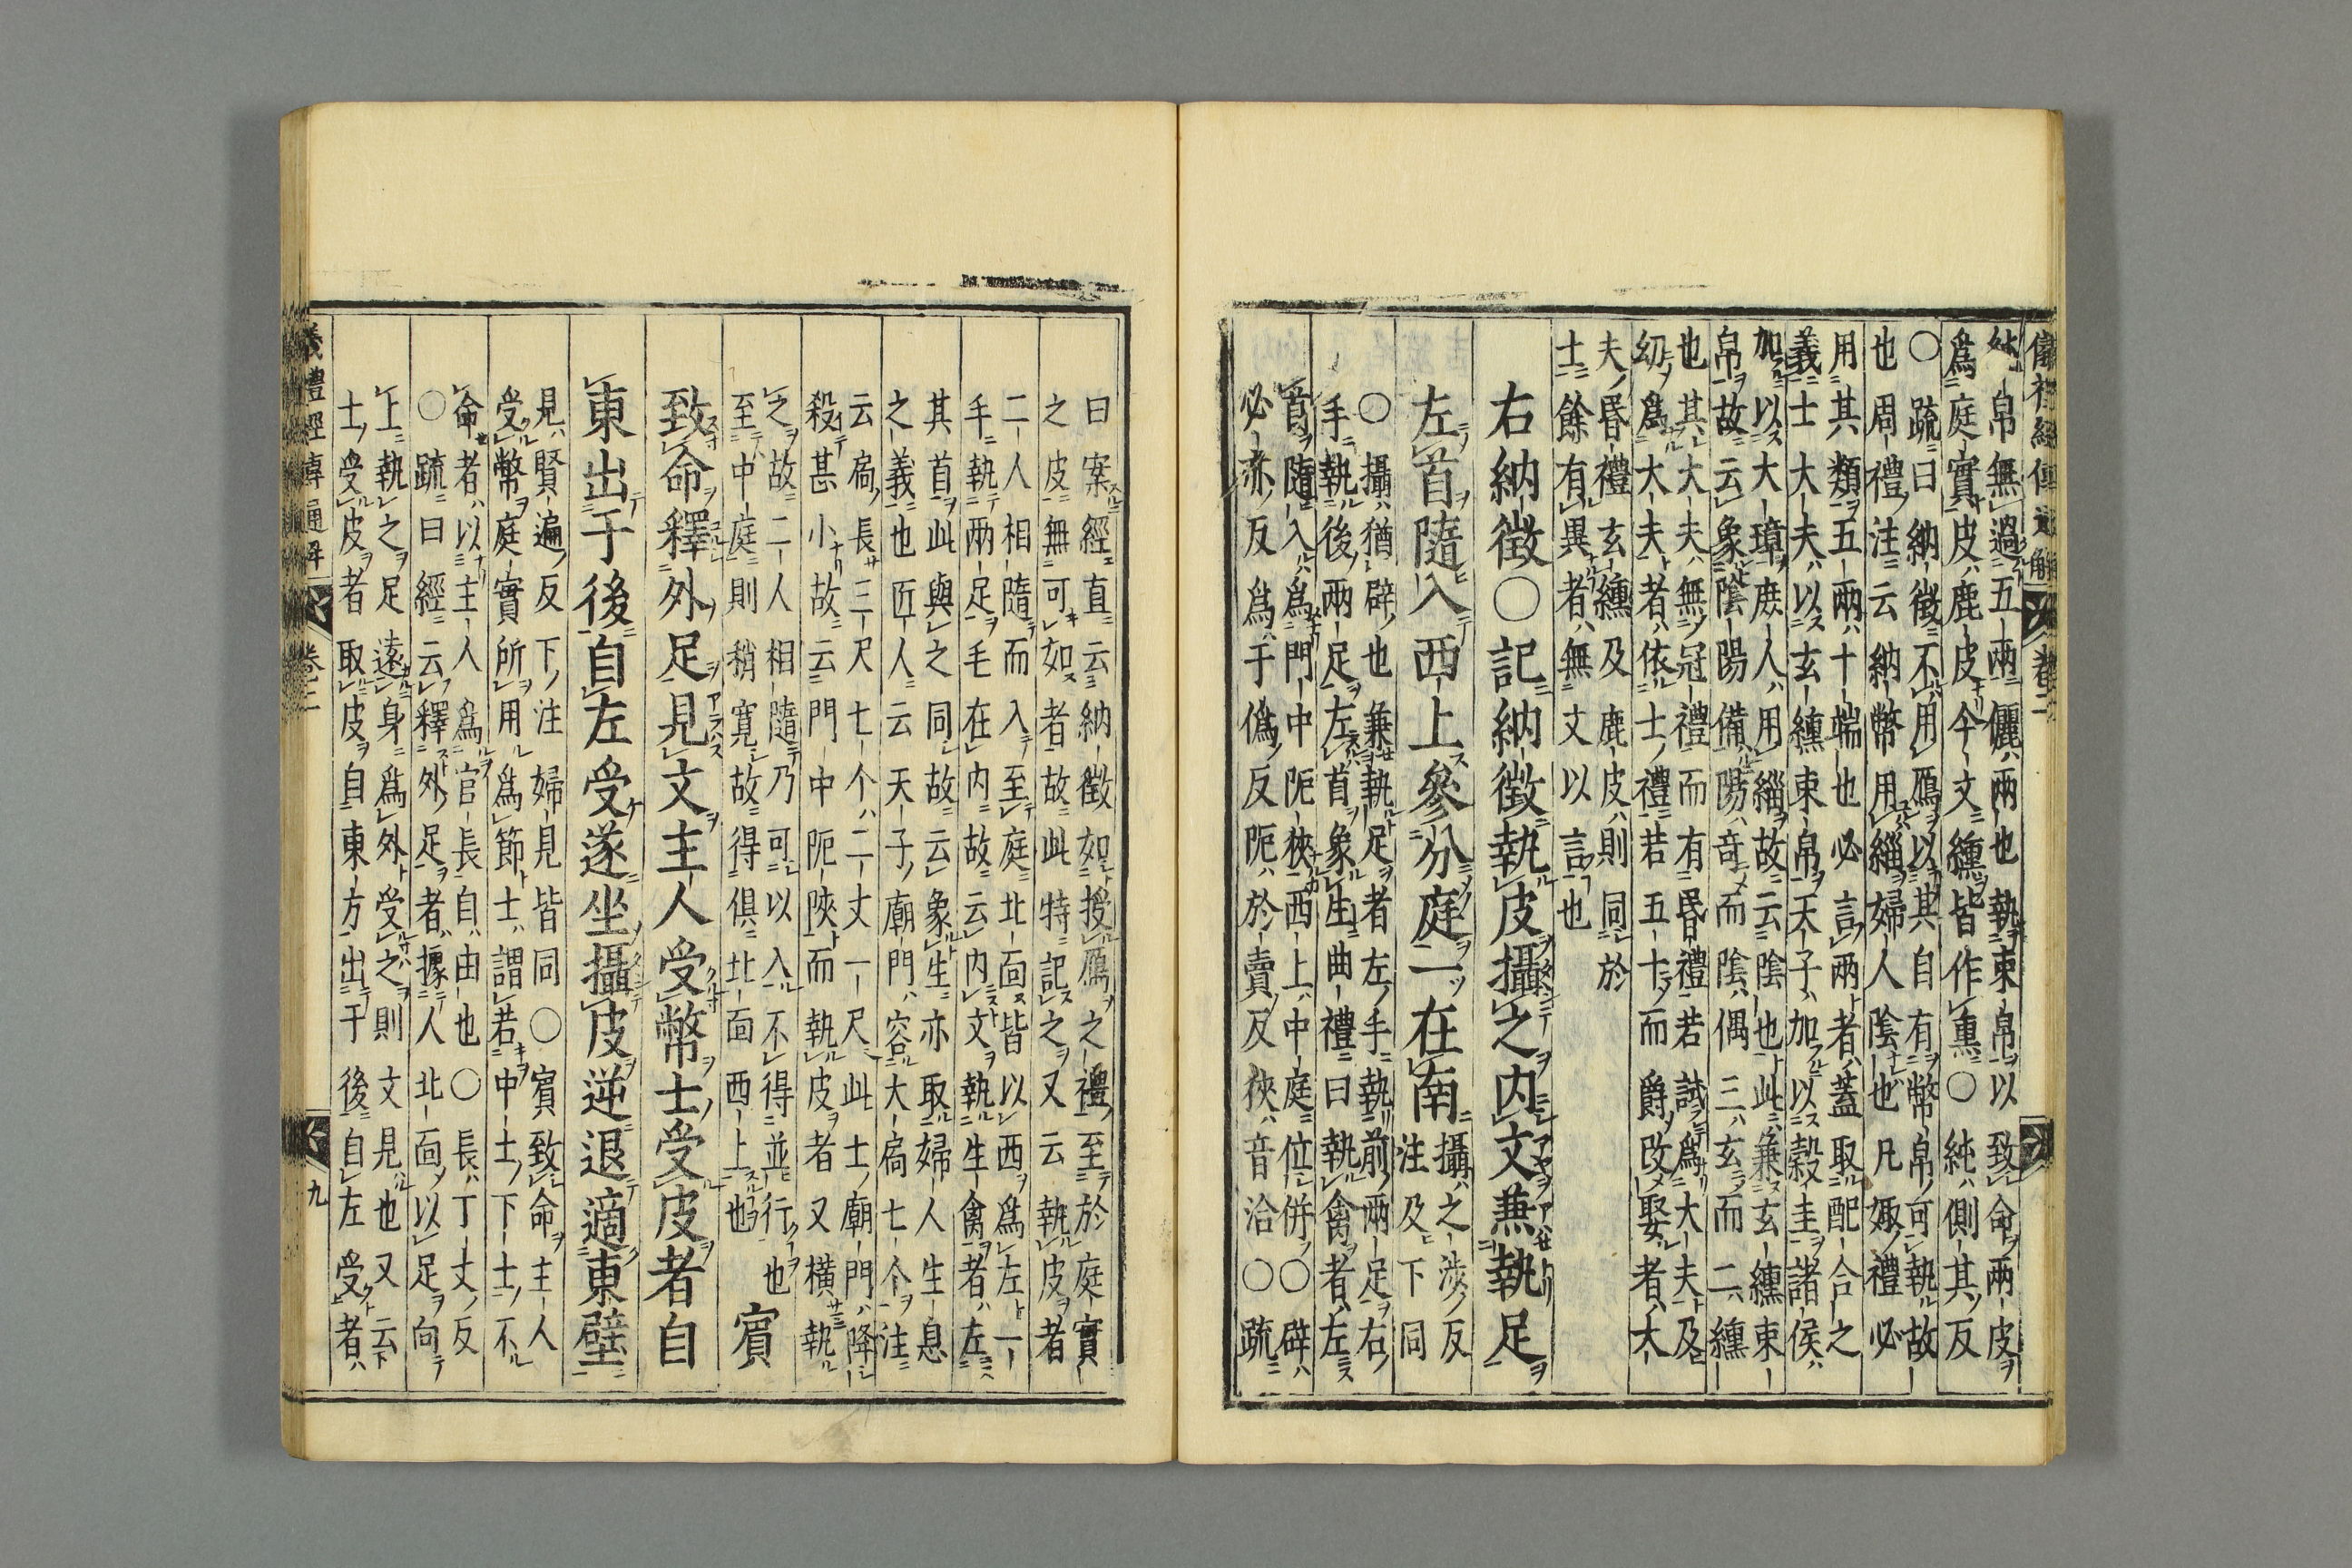 儀禮經傳通解 卷二
帛無過五兩儷兩也執束帛以致命兩皮
為庭實皮鹿皮今文纁皆作熏○純側其反
○疏曰納徵不用鴈以其自有幣帛可執故
也周禮注云納幣用緇婦人陰也凡娵禮必
用其類五兩十端也必言兩者蓋取配合之
義士大夫以玄纁束帛天子加以穀圭諸侯
加以大璋庶人用緇故云陰也此兼玄纁束
帛故云象陰陽備陽奇而陰偶三玄而二纁
也其大夫無冠禮而有昏禮若試為大夫及
幼為大夫者依士禮若五十而爵改娶者大
夫昏禮玄纁及鹿皮則同於
士餘有異者無文以言也
右納徵○記納徵執皮攝之内文兼執足
左首隨入西上參分庭一在南 攝之涉反
注及下同
○攝猶辟也兼執足者左手執前兩足右
手執後兩足左首象生曲禮曰執禽者左
首隨入為門中阨狹西上中庭位併○辟
必亦反為于偽反阨於賣反狹音洽○疏
曰案經直云納徵如授鴈之禮至於庭實
之皮無可如者故此特記之又云執皮者
二人相隨而入至庭北面皆以西為左一
手執兩足毛在内故云内文執生禽者左
其首此與之同故云象生亦取婦人生息
之義也匠人云天子廟門容大扃七个注
云扃長三尺七个二丈一尺此士廟門降
殺甚小故云門中阨陿而執皮者又橫執
之故二人相隨乃可以入不得並行也
至中庭則稍寬故得俱北面西上也
賓
致命釋外足見文主人受幣士受皮者自
東出于後自左受遂坐攝皮逆退適東壁
見賢遍反下注婦見皆同○賓致命主人
受幣庭實所用為節士謂若中士下士不
命者以主人為官長自由也○長丁丈反
○疏曰經云釋外足者據人北面以足向
上執之足遠身為外受之則文見也又云
士受皮者取皮自東方出于後自左受者
儀禮經傳通解 卷二 九